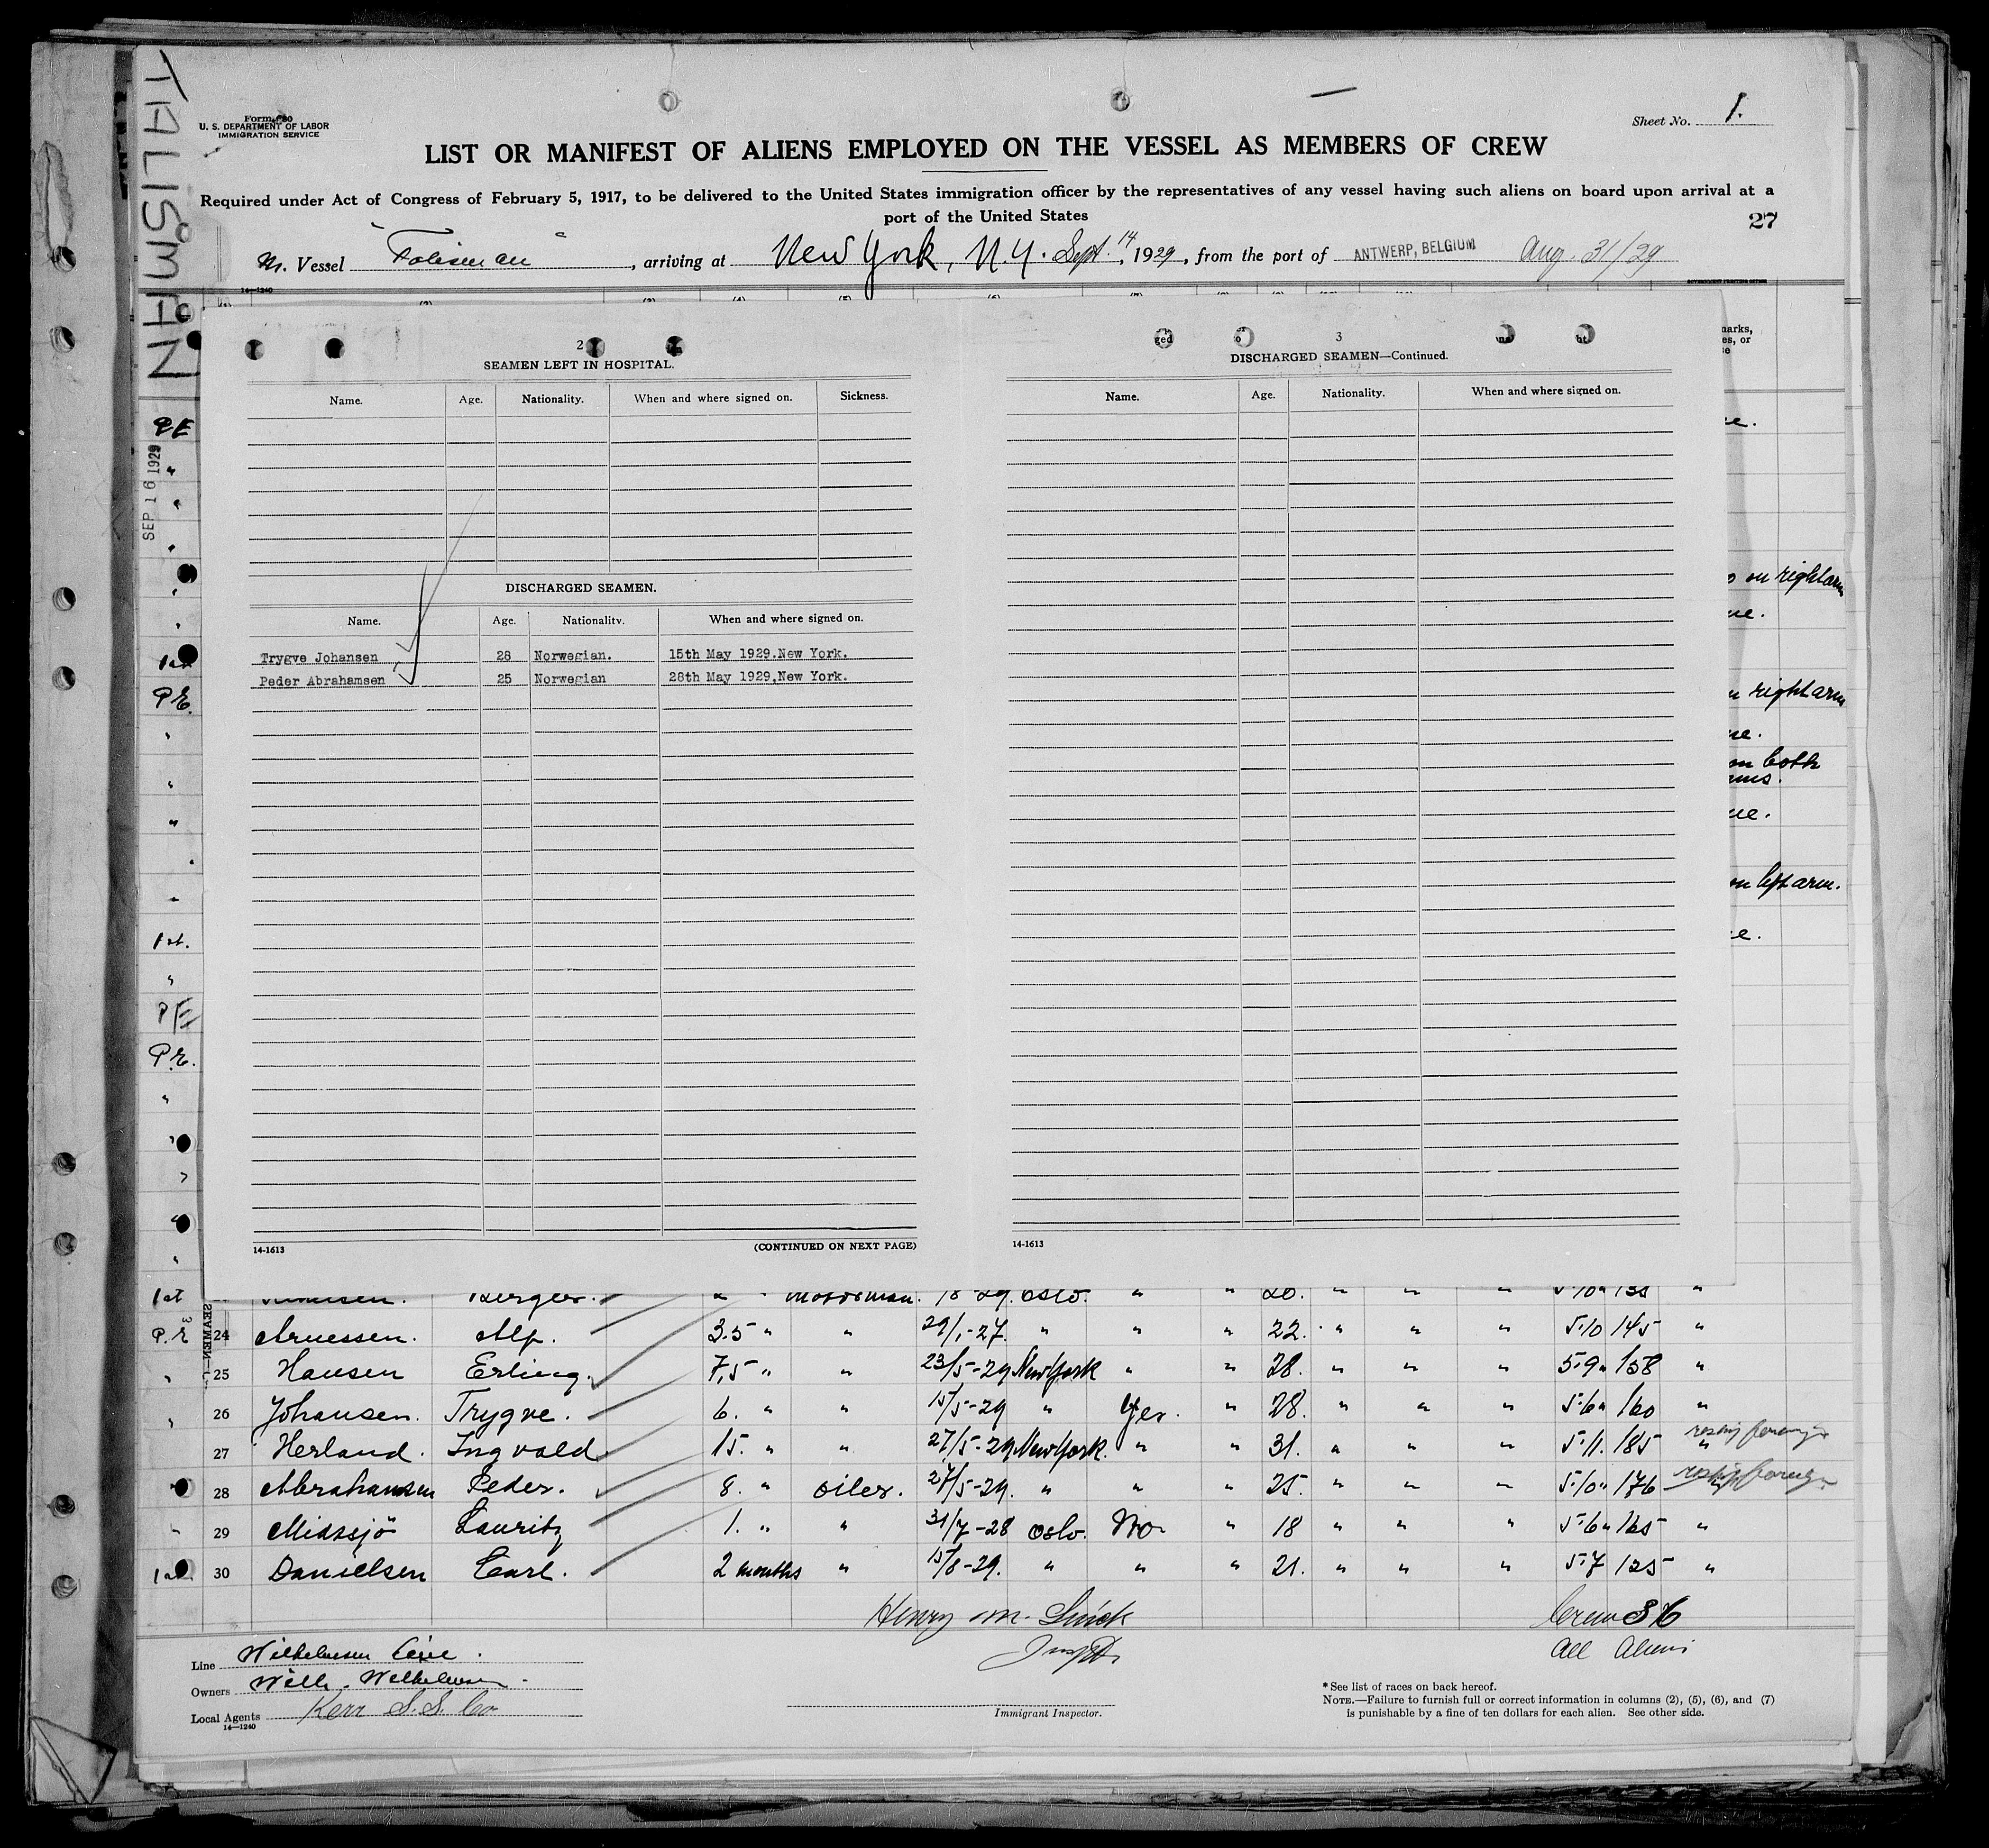 TALISMAN
Form 680
U. S. DEPARTMENT OF LABOR
IMMIGRATION SERVICE
Sheet No. 1.
LIST OR MANIFEST OF ALIENS EMPLOYED ON THE VESSEL AS MEMBERS OF CREW
Required under Act of Congress of February 5, 1917, to be delivered to the United States immigration officer by the representatives of any vessel having such aliens on board upon arrival at a
port of the United States
27
M. Vessel "Talisman", arriving at New York, N.Y. Sept. 14, 1929, from the port of ANTWERP, BELGIUM Aug. 31/29
14—1240
SEP 16 1929
2
SEAMEN LEFT IN HOSPITAL.
Name. Age. Nationality. When and where signed on. Sickness.
DISCHARGED SEAMEN.
Name. Age. Nationality. When and where signed on.
Trygve Johansen 28 Norwegian. 15th May 1929.New York.
Peder Abrahamsen 25 Norwegian 28th May 1929.New York.
14-1613 (CONTINUED ON NEXT PAGE)
3
DISCHARGED SEAMEN—Continued.
Name. Age. Nationality. When and where signed on.
14-1613
on right arm
right arm
on both
on left arm.
Birger. " motorman. 18 29. Oslo. " " 20. " " " 5·10" 135 "
P.E 24 Arnessen. Alf. 3.5 " " 29/1-27. " " " 22. " " " 5·10 145 "
25 Hansen Erling. 7,5 " " 23/5-29 New York " " 28. " " " 5·9" 158 "
26 Johansen. Trygve. 6. " " 15/5-29 " Yes. " 28. " " " 5·6" 160 "
27 Herland. Ingvald 15. " " 27/5-29 New York. " " 31. " " " 5·11. 185 "
28 Abrahamsen Peder. 8. " oiler. 27/5-29. " " " 25. " " " 5·10" 176
29 Midssjö Lauritz 1. " " 31/7-28 Oslo. No " 18 " " " 5·6" 165 "
1st 30 Danielsen Carl. 2 months " 15/8-29. " " " 21. " " " 5·7 125 "
Henry M.
Crew 36
All Aliens
Line Wilhelmsen Line.
Owners Wilh. Wilhelmsen.
Local Agents Kerr S.S. Co
14—1240
Immigrant Inspector.
* See list of races on back hereof.
NOTE.—Failure to furnish full or correct information in columns (2), (5), (6), and (7)
is punishable by a fine of ten dollars for each alien. See other side.